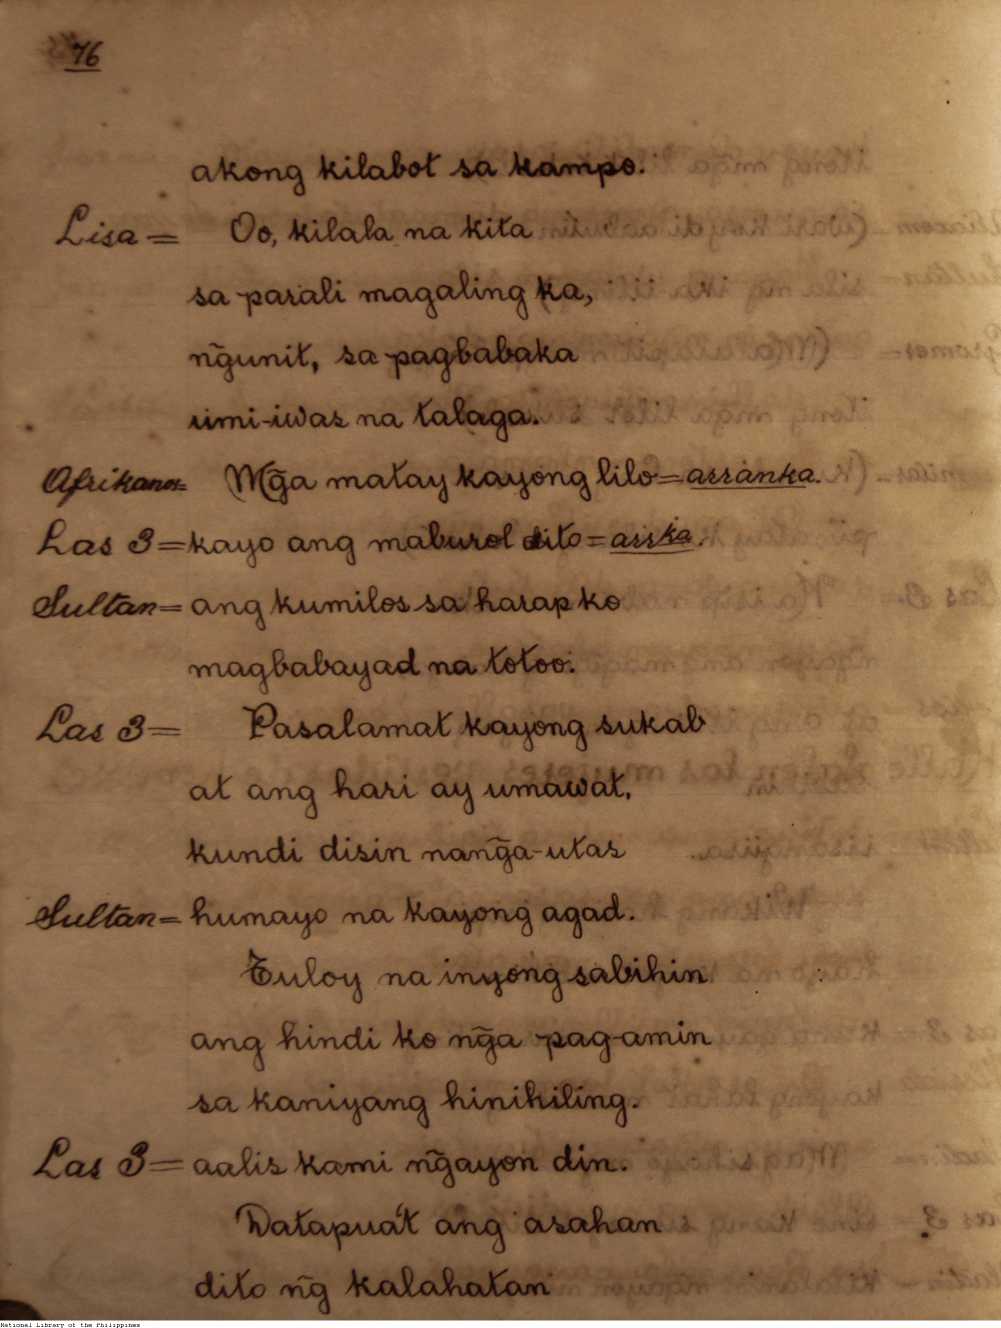 76
akong kilabot sa kampo.
Lisa = Oo, kilala na kita
sa parali magaling ka,
ng̃unit, sa pagbabaka
umi-iwas na talaga.
Afrikanos = Mg̃a matay kayong lilo = arranka.
Las 3 = kayo ang maburol dito = arrka.
Sultan = ang kumilos sa harap ko
magbabayad na totoo.
Las 3 = Pasalamat kayong sukab
at ang hari ay umawat,
kundi disin nang̃a-utas
Sultan = humayo na kayong agad.
Tuloy na inyong sabihin
ang hindi ko ng̃a pag-amin
sa kaniyang hinihiling.
Las 3 = aalis kami ng̃ayon din.
Datapua't ang asahan
dito ng̃ kalahatan
National Library of the Philippines